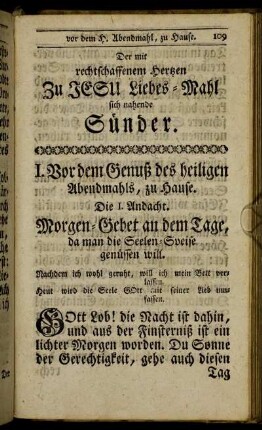 vor dem H. Abendmahl, zu Hause. 109
Der mit
rechtschaffenem Hertzen
Zu JESU Liebes-Mahl
sich nahende
Sünder.
I. Vor dem Genuß des heiligen
Abendmahls, zu Hause.
Die I. Andacht.
Morgen-Gebet an dem Tage,
da man die Seelen-Speise
geniessen will.
Nachdem ich wohl geruht, will ich mein Bett ver-
lassen.
Heut wird die Seele GOtt mit seiner Lieb um-
fassen.
GOtt Lob! die Nacht ist dahin,
und aus der Finsterniß ist ein
lichter Morgen worden. Du Sonne
der Gerechtigkeit, gehe auch diesen
Tag